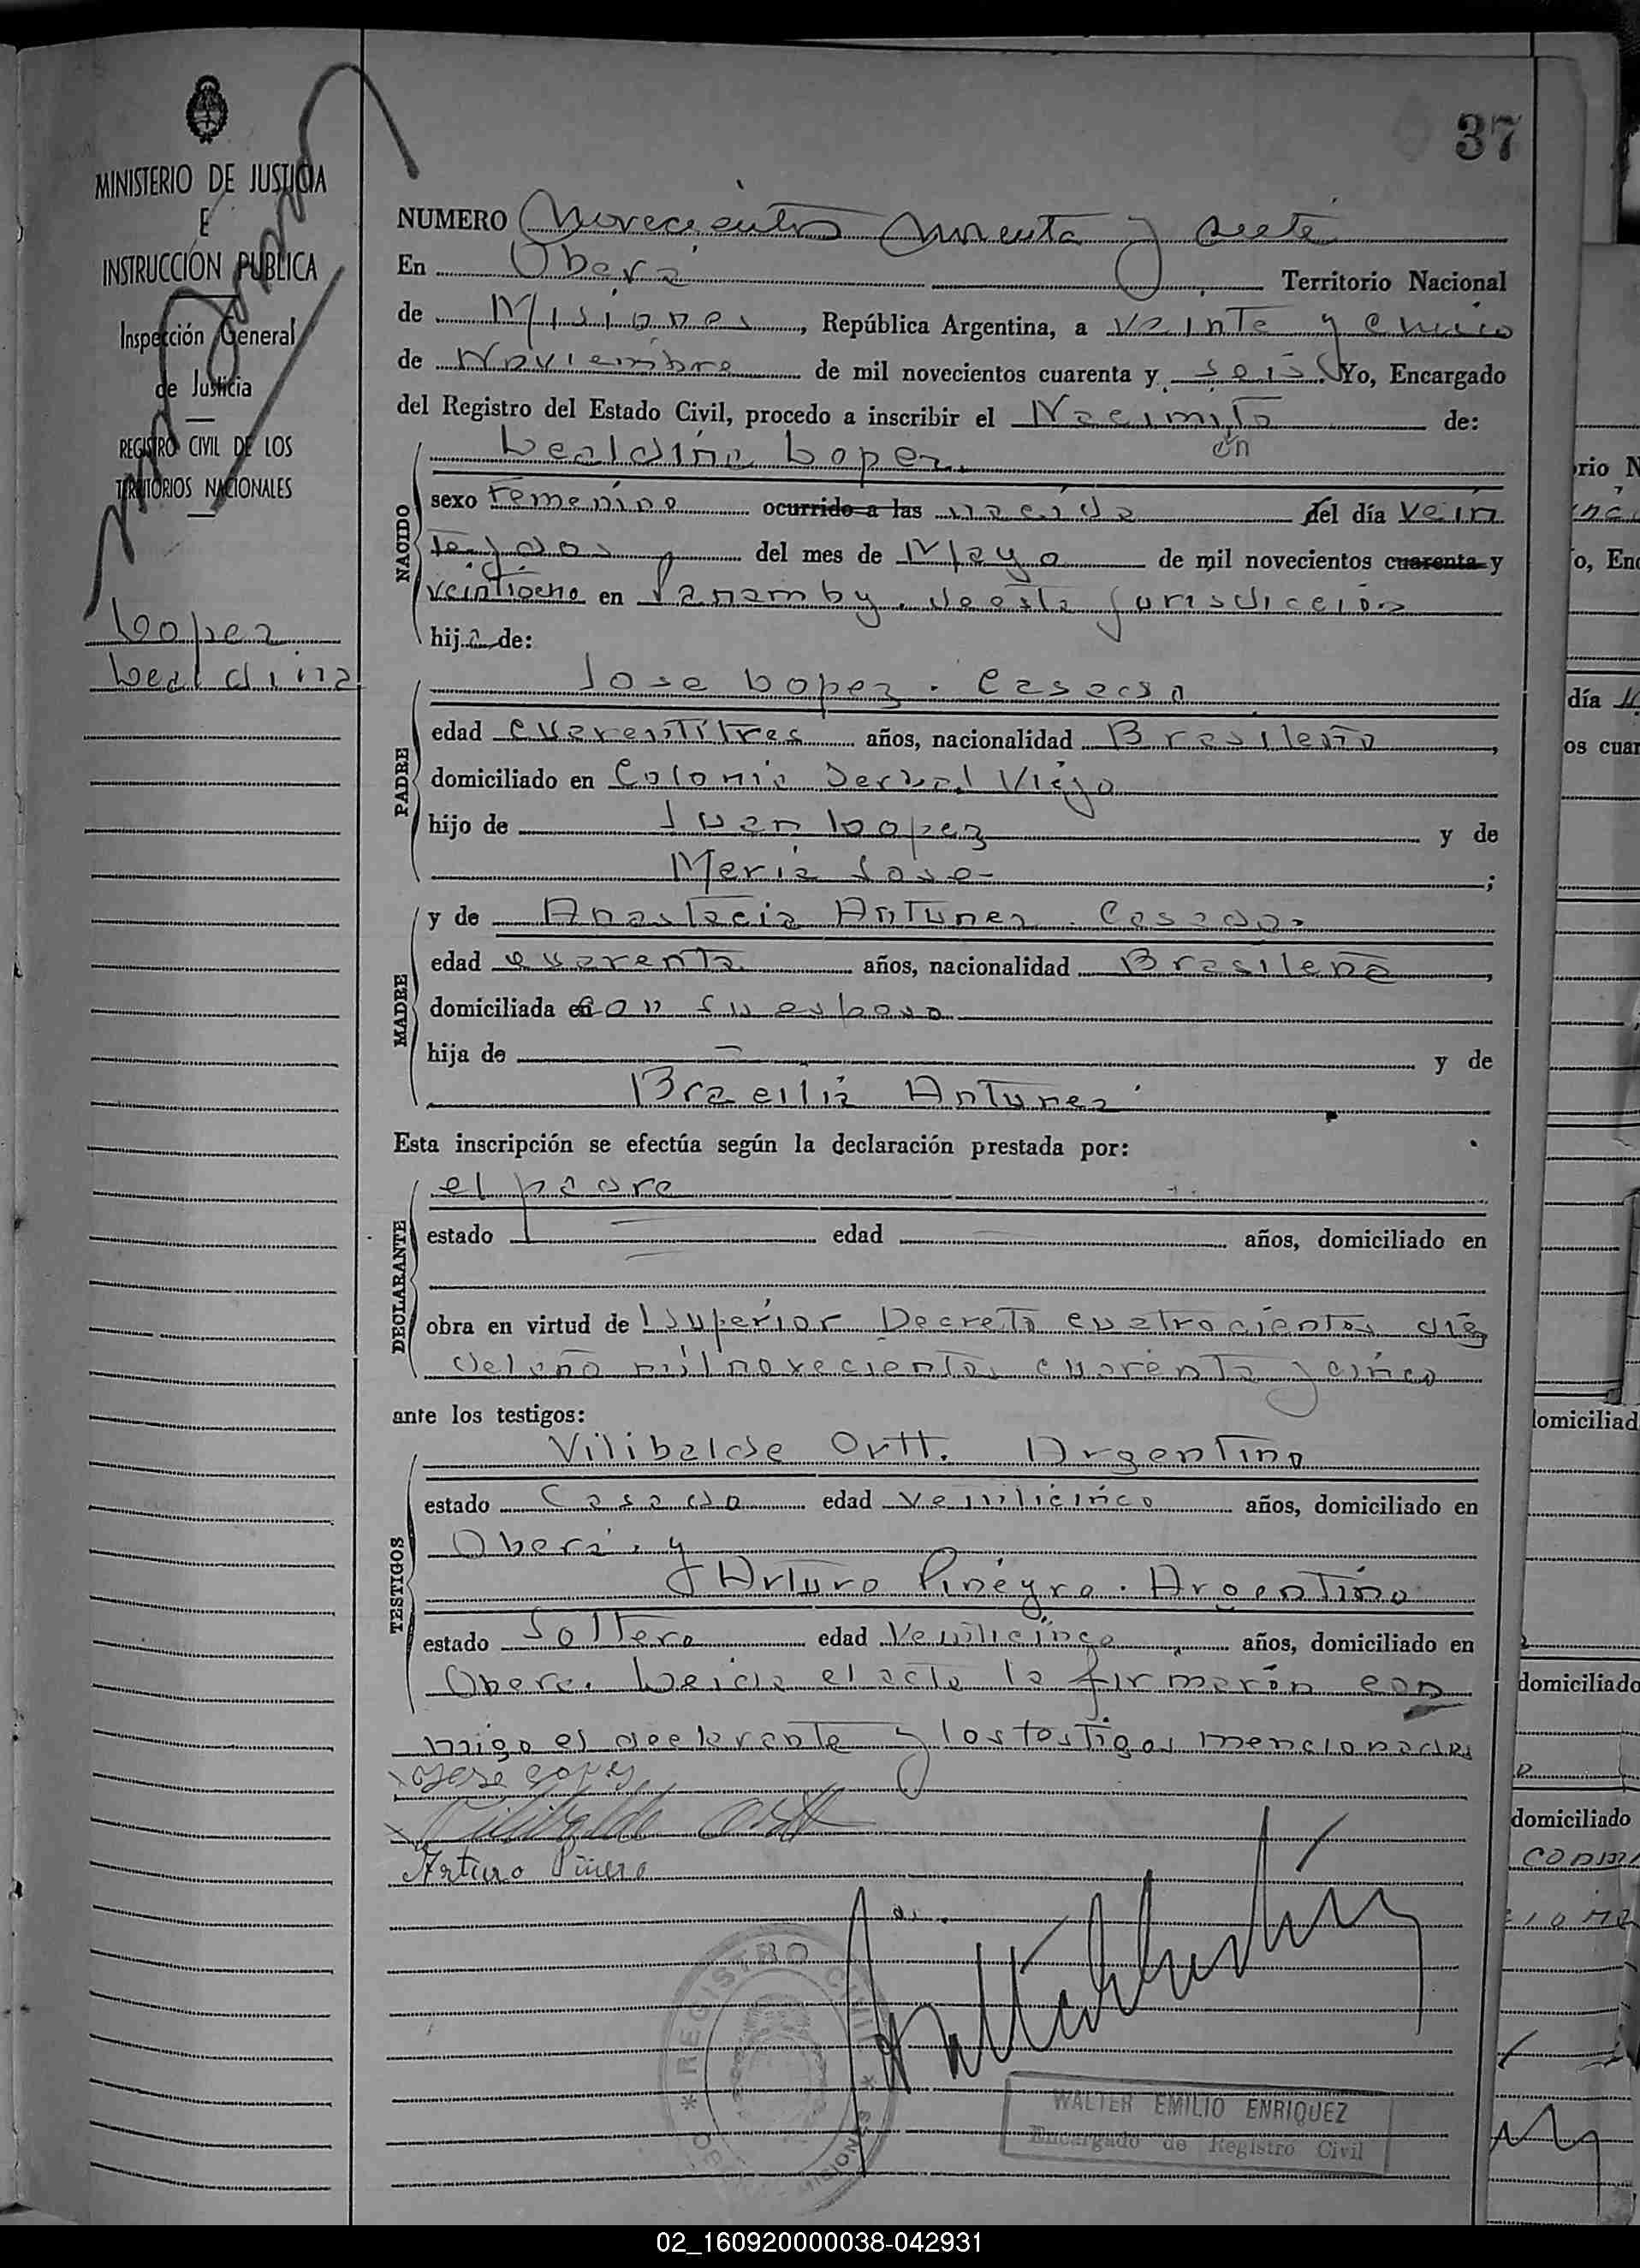 37
MINISTERIO DE JUSTICIA
E
INSTRUCCIÓN PÚBLICA
Inspección General
de Justicia
REGISTRO CIVIL DE LOS
TERRITORIOS NACIONALES
Lopez
Lealdina
NUMERO Novecientos noventa y siete
En Oberá Territorio Nacional
de Misiones, República Argentina, a veinte y cinco
de Noviembre de mil novecientos cuarenta y seis Yo, Encargado
del Registro del Estado Civil, procedo a inscribir el Nacimito de:
en
NACIDO
Lealdina Lopez.
sexo Femenino ocurrido a las nacida del día vein
te y dos del mes de Mayo de mil novecientos cuarenta y
veintiocho en Panamby. de esta jurisdiccion
hija de:
PADRE
Jose Lopez. Casado
edad cuarentitres años, nacionalidad Brasileño,
domiciliado en Colonia Serval Viejo
hijo de Juan Lopez y de
Maria Jose ;
MADRE
y de Anastacia Antunez. Casada
edad cuarenta años, nacionalidad Brasileña,
domiciliada en con su esposo
hija de — y de
Braeilia Antunez
Esta inscripción se efectúa según la declaración prestada por:
DECLARANTE
el padre
estado edad años, domiciliado en
obra en virtud de Superior Decreto cuatrocientos diez
del año mil novecientos cuarenta y cinco
ante los testigos:
TESTIGOS
Vilibalde Ortt. Argentino
estado Casado edad veinticinco años, domiciliado en
Oberá. y
Arturo Pineyro. Argentino
estado Soltero edad Veinticinco años, domiciliado en
Obera. Leida el acta la firmarón con
migo el declarante y los testigos mencionados
Jose Lopez
Vilibaldo Ortt
Arturo Piñero
REGISTRO CIVIL
MISIONES
WALTER EMILIO ENRIQUEZ
Encargado de Registro Civil
02_160920000038-042931